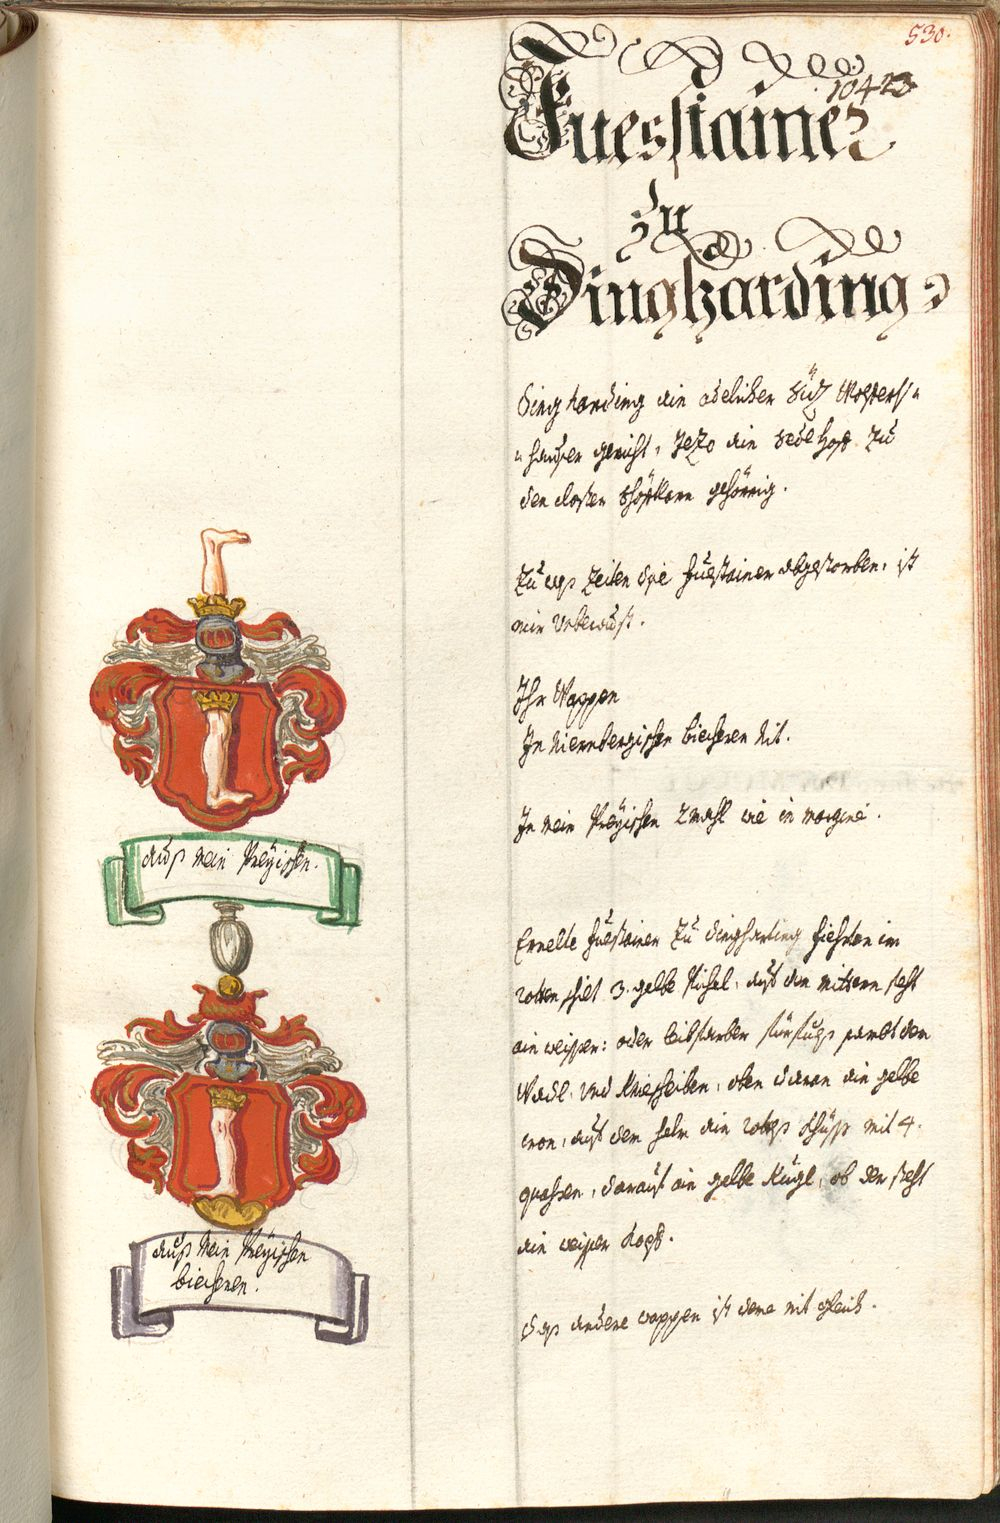 530.
10423
Fuesstainer
zu
Dingharding
Dingharding ein adelicher Siz Wolferts„
„hauser gericht, jezo ein Sedlhoff zu
dem closter Schöfftlarn gehörrig.
Zu was Zeiten die Fuestainer abgestorben, ist
mir Unbewust.
Ihr Wappen
In Niernbergischen biecheren nit.
In mein Preyischen 2 mahl wie in margine.
Ernelte Fuestainer Zu Dingharting fiehrten im
rotten schilt 3. gelbe Pichel, auf den mittern steht
ein weisser: oder leibfarber fürfues sambt dem
Wadl, und Kniescheiben, oben daran ein gelbe
cron, auf dem helm ein rottes Küss mit 4.
quasten, darauf ein gelbe Kugl, ob der steht
ein weisser Kopf.
Das andere wappen ist deme nit gleich.
Auß mein Preyischen.
Auß mein Preyischen
biecheren.